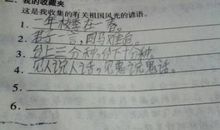 我的收藏夹
这是我收集的有关祖国风光的谚语。
1. 一年
2. 君子一言,驷马难追。
3. 台上三分钟,台下十年功
4. 见人说人话,见鬼说鬼话。
5.
6.